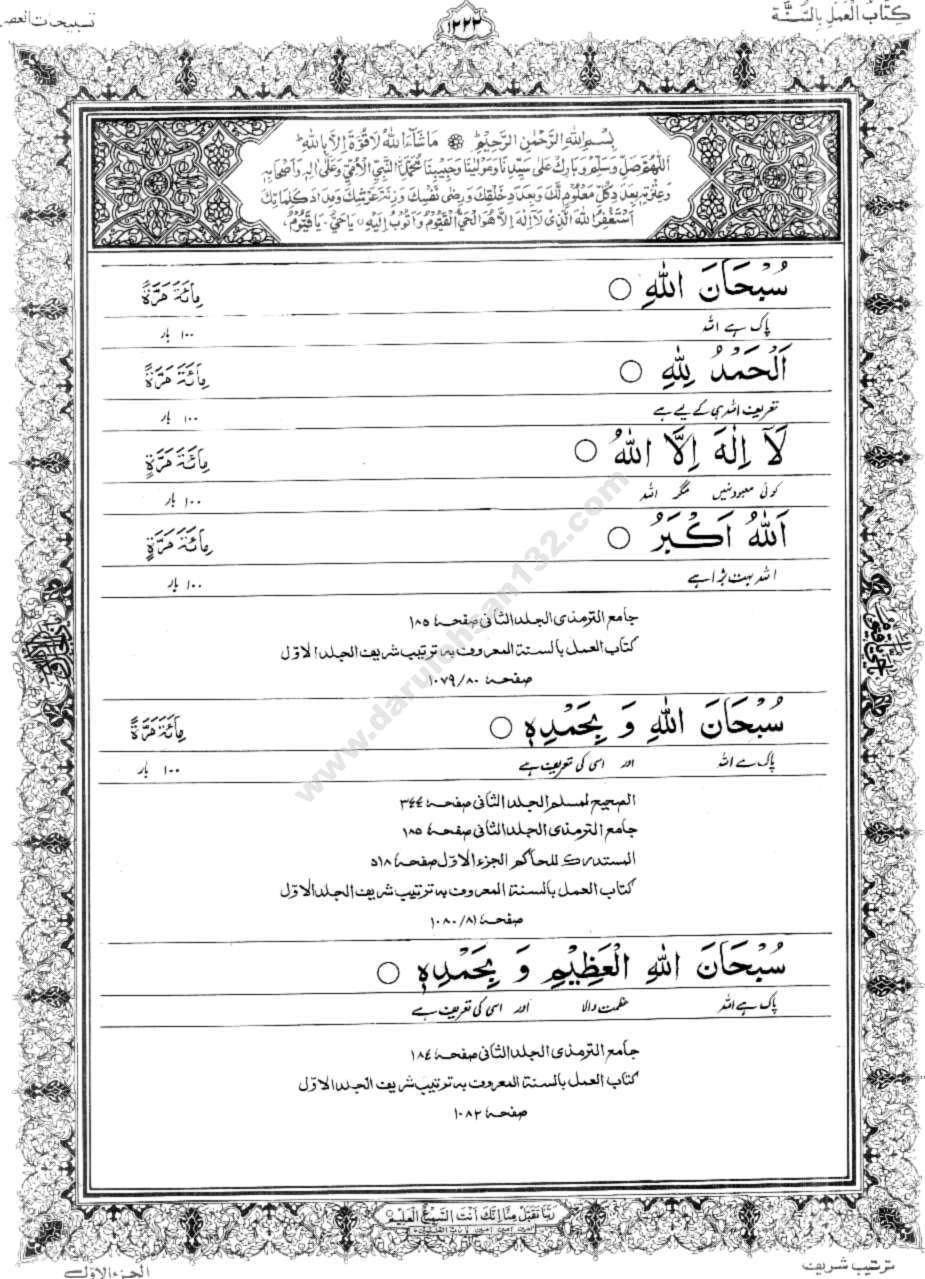 كِتَابُ الْعَمَلِ بِالسُّنَّة
١٢٢٢
تسبيحات العصر
بِسْمِ اللهِ الرَّحْمٰنِ الرَّحِيْمِ ۞ مَا شَآءَ اللهُ لَا قُوَّةَ اِلَّا بِاللهِ
اَللّٰهُمَّ صَلِّ وَسَلِّمْ وَبَارِكْ عَلٰى سَيِّدِنَا وَمَوْلٰينَا وَحَبِيْبِنَا مُحَمَّدٍ النَّبِيِّ الْاُمِّيِّ وَعَلٰى اٰلِهٖ وَاَصْحَابِهٖ
وَعِتْرَتِهٖ بِعَدَدِ كُلِّ مَعْلُوْمٍ لَّكَ وَبِعَدَدِ خَلْقِكَ وَرِضٰى نَفْسِكَ وَزِنَةَ عَرْشِكَ وَمِدَادَ كَلِمَاتِكَ
اَسْتَغْفِرُ اللهَ الَّذِيْ لَآ اِلٰهَ اِلَّا هُوَ الْحَيُّ الْقَيُّوْمُ وَاَتُوْبُ اِلَيْهِ يَا حَيُّ يَا قَيُّوْمُ
سُبْحَانَ اللهِ ○ مِائَةَ مَرَّةً
پاک ہے اللہ ۱۰۰ بار
اَلْحَمْدُ لِلهِ ○ مِائَةَ مَرَّةً
تعریف اللہ ہی کے لیے ہے ۱۰۰ بار
لَآ اِلٰهَ اِلَّا اللهُ ○ مِائَةَ مَرَّةٍ
کوئی معبود نہیں مگر اللہ ۱۰۰ بار
اَللهُ اَكْبَرُ ○ مِائَةَ مَرَّةٍ
اللہ بہت بڑا ہے ۱۰۰ بار
جامع الترمذی الجلد الثانی صفحۃ ۱۸۵
کتاب العمل بالسنۃ المعروف بہ ترتیب شریف الجلد الاوّل
صفحۃ ۱۰۷۹/۸۰
سُبْحَانَ اللهِ وَ بِحَمْدِهٖ ○ مِائَةَ مَرَّةً
پاک ہے اللہ اور اسی کی تعریف ہے ۱۰۰ بار
الصحیح لمسلم الجلد الثانی صفحۃ ۳٤٤
جامع الترمذی الجلد الثانی صفحۃ ۱۸۵
المستدرک للحاکم الجزء الاوّل صفحۃ ۵۱۸
کتاب العمل بالسنۃ المعروف بہ ترتیب شریف الجلد الاوّل
صفحۃ ۱۰۸۰/۸۱
سُبْحَانَ اللهِ الْعَظِيْمِ وَ بِحَمْدِهٖ ○
پاک ہے اللہ عظمت والا اور اسی کی تعریف ہے
جامع الترمذی الجلد الثانی صفحۃ ۱۸٤
کتاب العمل بالسنۃ المعروف بہ ترتیب شریف الجلد الاوّل
صفحۃ ۱۰۸۲
رَبَّنَا تَقَبَّلْ مِنَّا اِنَّكَ اَنْتَ السَّمِيْعُ الْعَلِيْمُ
ترتیب شریف
الجزء الاوّل
www.darulehsan132.com